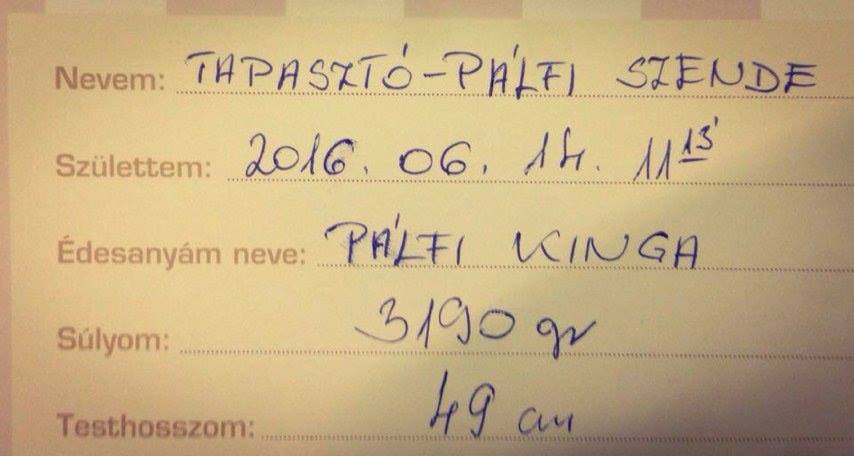 Nevem: TAPASZTÓ-PÁLFI SZENDE
Születtem: 2016. 06. 14. 11 13'
Édesanyám neve: PÁLFI KINGA
Súlyom: 3190 gr
Testhosszom: 49 cm